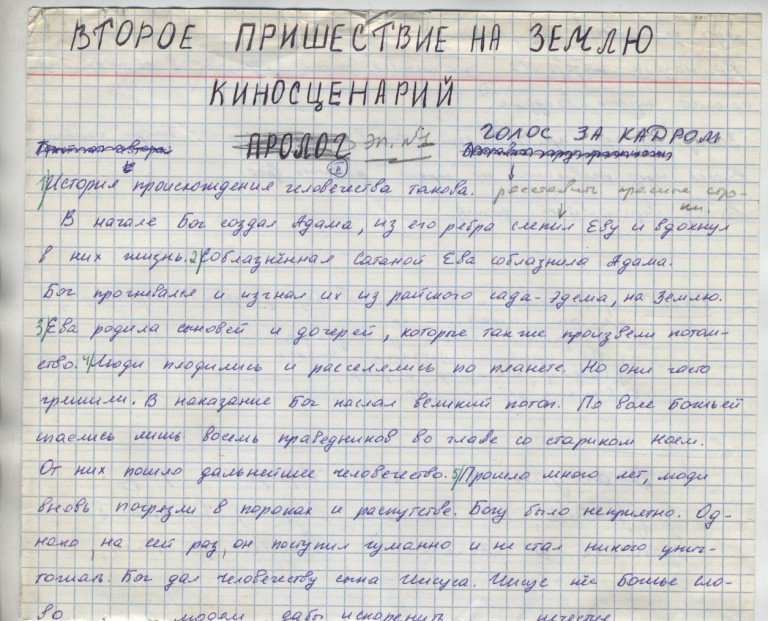 ВТОРОЕ ПРИШЕСТВИЕ НА ЗЕМЛЮ
КИНОСЦЕНАРИЙ
ПРОЛОГ эп. №1 ГОЛОС ЗА КАДРОМ
1) История происхождения человечества такова. расставить красные стро-
ки.
В начале Бог создал Адама, из его ребра слепил Еву и вдохнул
в них жизнь. 2) Соблазнённая Сатаной Ева соблазнила Адама.
Бог прогневался и изгнал их из райского сада - Эдема, на Землю.
3) Ева родила сыновей и дочерей, которые также произвели потом-
ство. 4) Люди плодились и расселялись по планете. Но они часто
грешили. В наказание Бог наслал великий потоп. По воле Божьей
спаслись лишь восемь праведников во главе со стариком Ноем.
От них пошло дальнейшее человечество. 5) Прошло много лет, люди
вновь погрязли в пороках и распутстве. Богу было неприятно. Од-
нако на сей раз, он поступил гуманно и не стал никого унич-
тожать. Бог дал человечеству сына Иисуса. Иисус нёс Божье сло-
во людям дабы искоренить нечестие